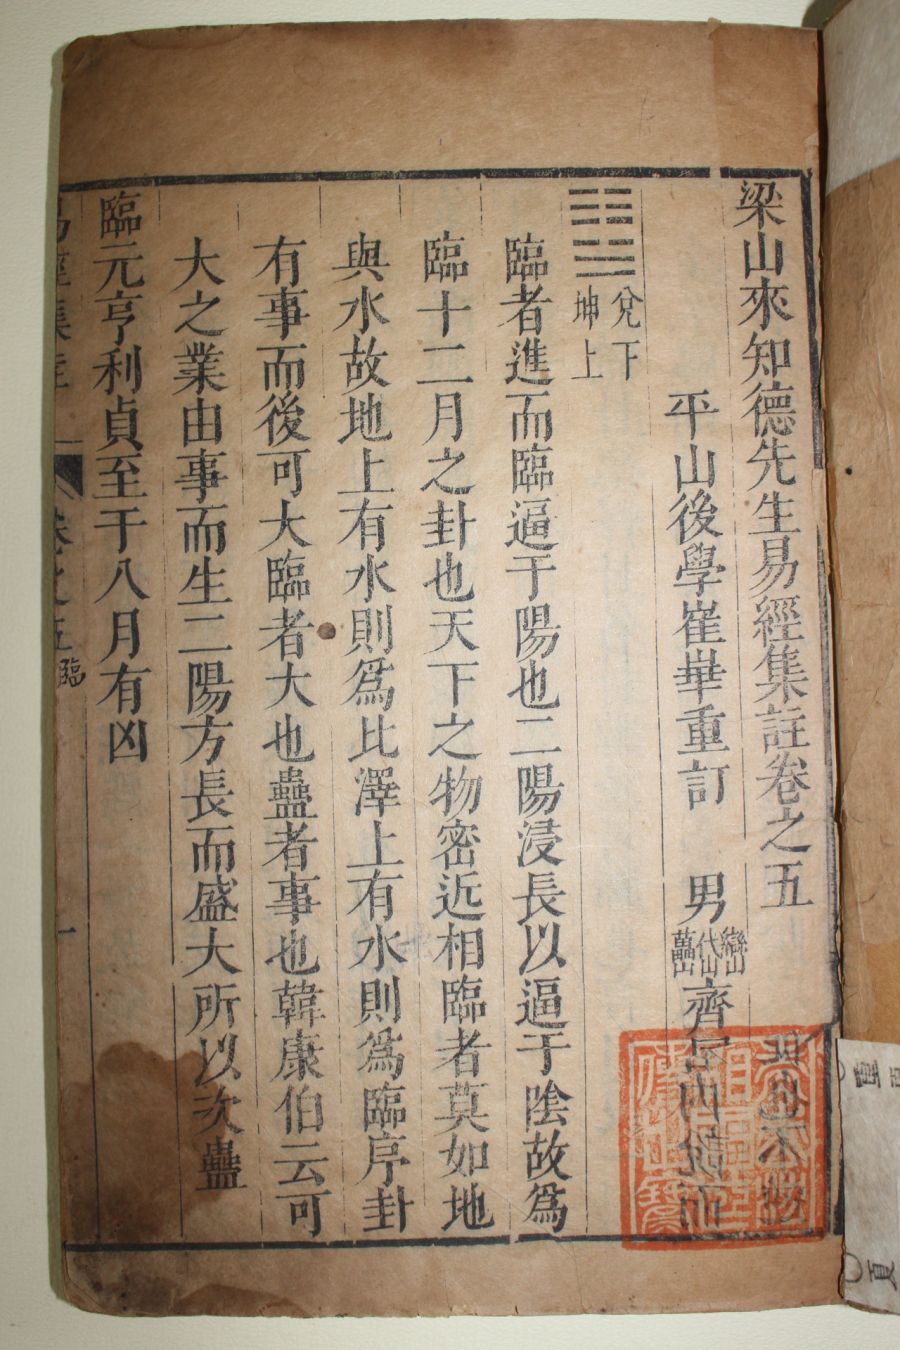 梁山來知德先生易經集註卷之五
平山後學崔華重訂 男 巒山 岱山 萬山 齊
兌下
坤上
臨者進而臨逼于陽也二陽浸長以逼于陰故為
臨十二月之卦也天下之物密近相臨者莫如地
與水故地上有水則為比澤上有水則為臨序卦
有事而後可大臨者大也蠱者事也韓康伯云可
大之業由事而生二陽方長而盛大所以次蠱
臨元亨利貞至于八月有凶
易經集註 卷之五 臨 一